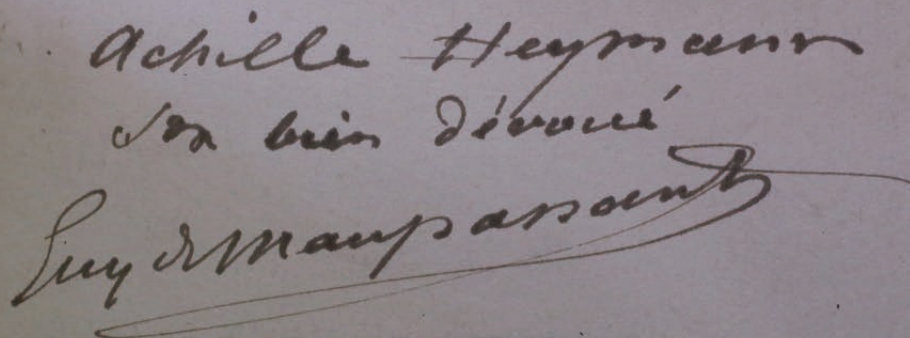 Achille Heymann
son bien dévoué
Guy de Maupassant